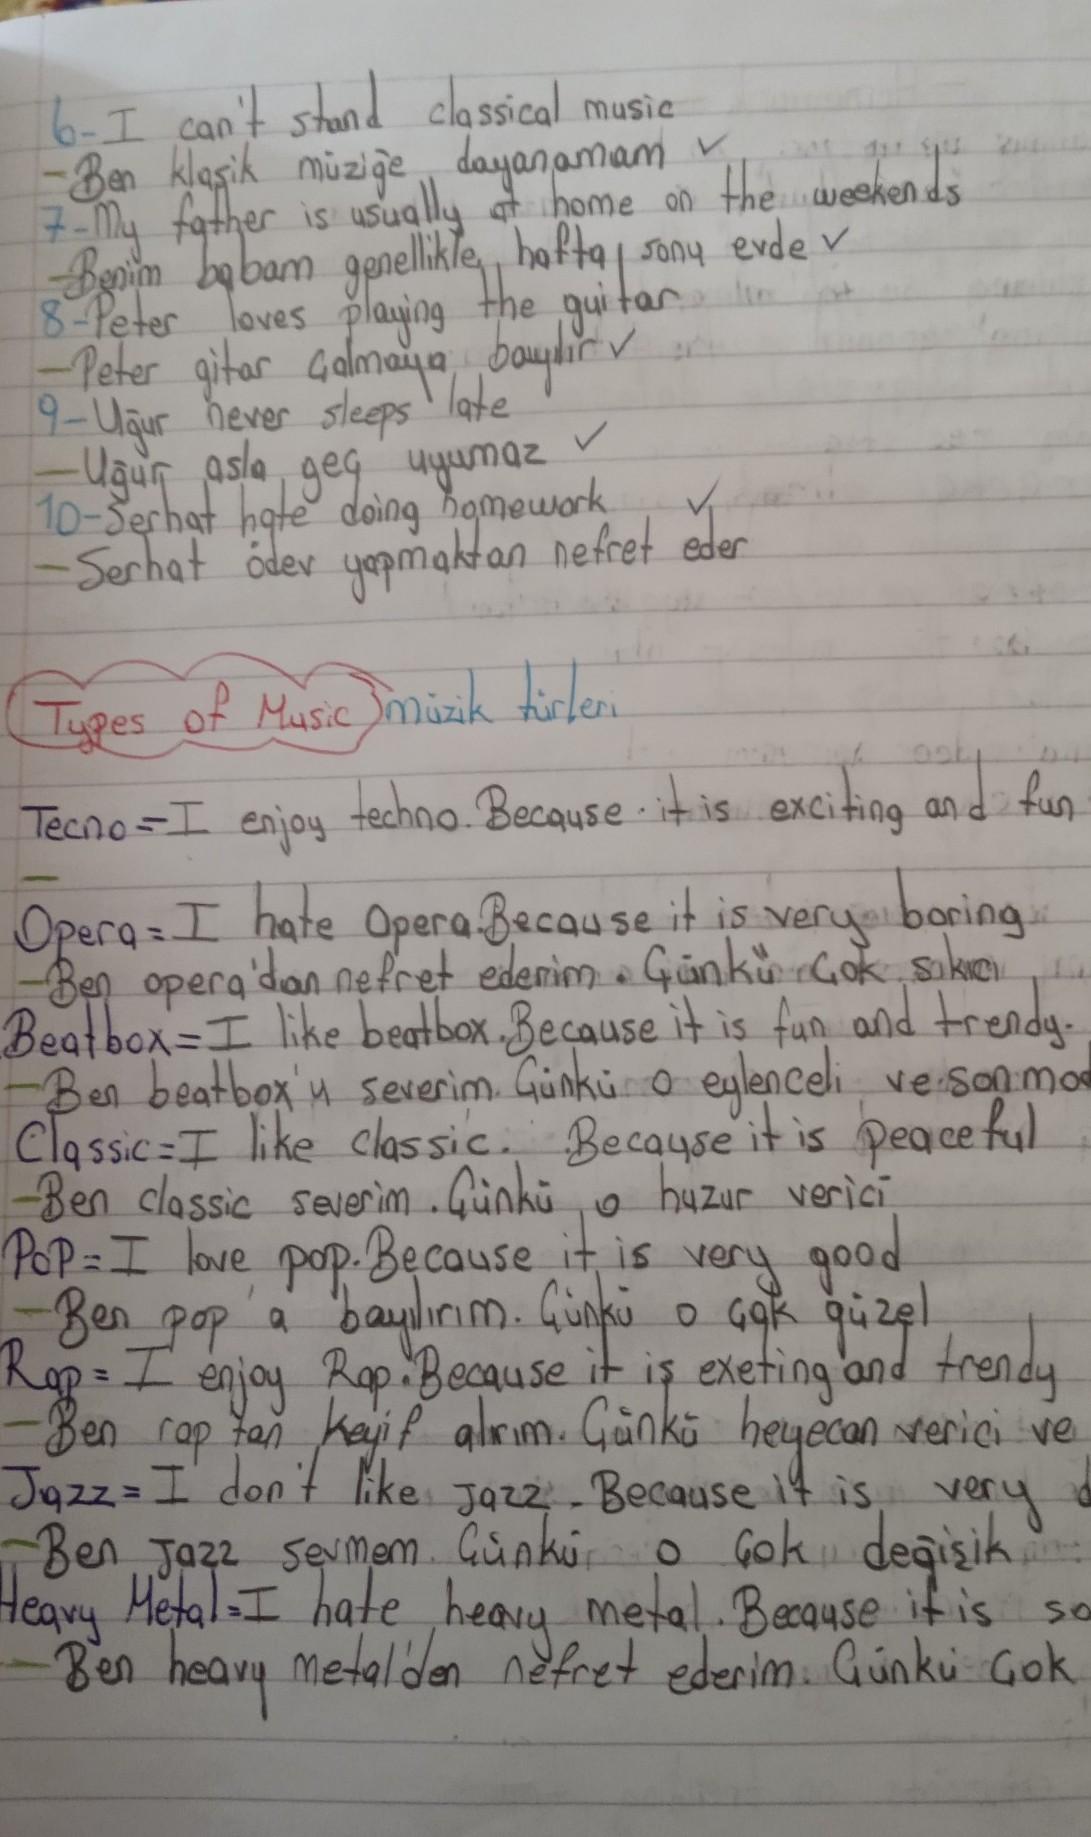 6-I can't stand classical music
-Ben klasik müziğe dayanamam ✓
7-My father is usually at home on the weekends
-Benim babam genellikle hafta sonu evde ✓
8-Peter loves playing the guitar
-Peter gitar çalmaya bayılır ✓
9-Uğur never sleeps late
-Uğur asla geç uyumaz ✓
10-Serhat hate doing homework ✓
-Serhat ödev yapmaktan nefret eder
Types of Music müzik türleri
Tecno=I enjoy techno. Because it is exciting and fun
-
Opera=I hate Opera. Because it is very boring
-Ben opera'dan nefret ederim. Çünkü çok sıkıcı
Beatbox=I like beatbox. Because it is fun and trendy.
-Ben beatbox'u severim. Çünkü o eylenceli ve son mod
Classic=I like classic. Because it is peaceful
-Ben classic severim. Çünkü o huzur verici
PoP=I love pop. Because it is very good
-Ben pop'a bayılırım. Çünkü o çok güzel
Rap=I enjoy Rap. Because it is exeting and trendy
-Ben rap'tan keyif alırım. Çünkü heyecan verici ve
Jazz=I don't like Jazz. Because it is very
-Ben Jazz sevmem. Çünkü o çok değişik
Heavy Metal=I hate heavy metal. Because it is so
-Ben heavy metal'den nefret ederim. Çünkü çok